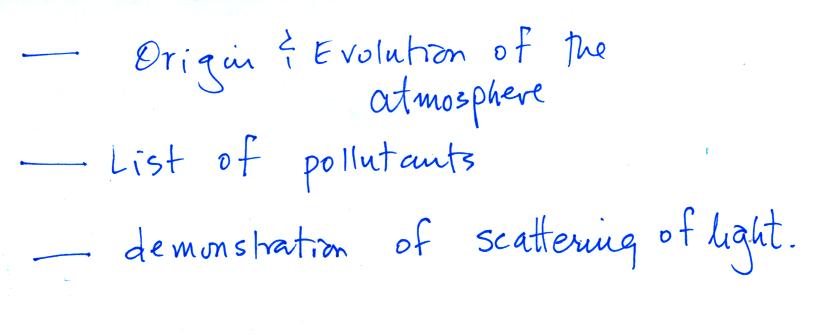 — Origin & Evolution of the
atmosphere
— List of pollutants
— demonstration of scattering of light.